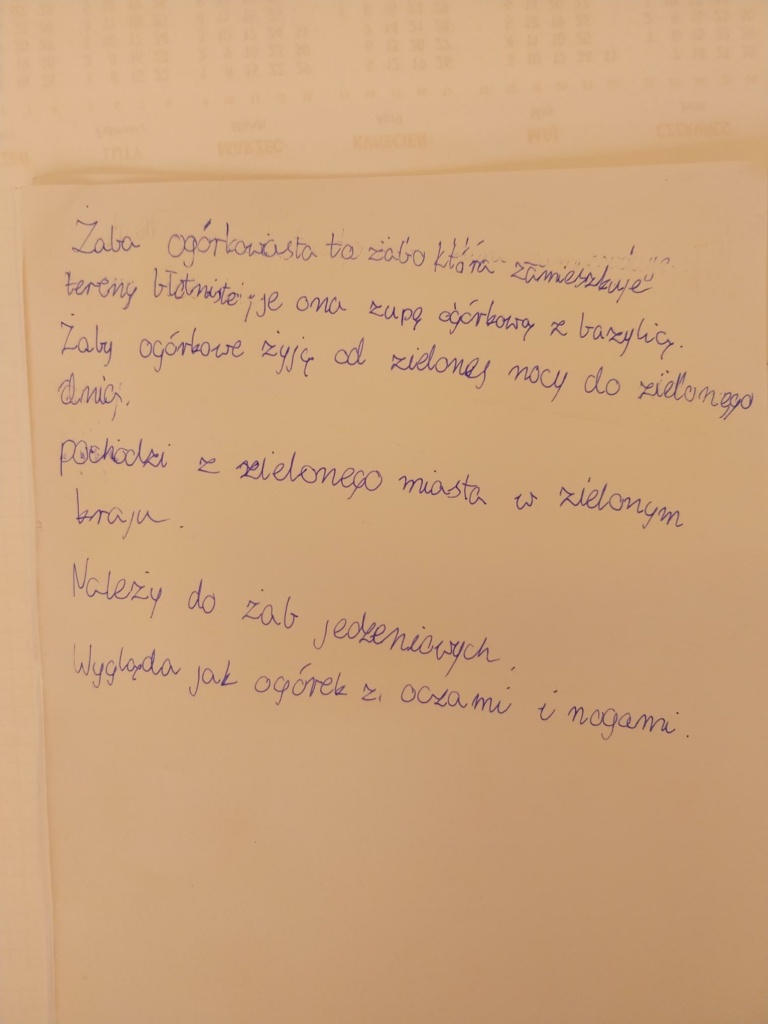 LUTY
MARZEC
KWIECIEŃ
MAJ
CZERWIEC
Żaba ogórkowasta to żaba która zamieszkuje
tereny błotniste, je ona zupę ogórkową z bazylią.
Żaby ogórkowe żyję od zielonej nocy do zielonego
dnią.
pochodzi z zielonego miasta w zielonym
kraju.
Należy do żab jedzeniowych.
Wygląda jak ogórek z oczami i nogami.